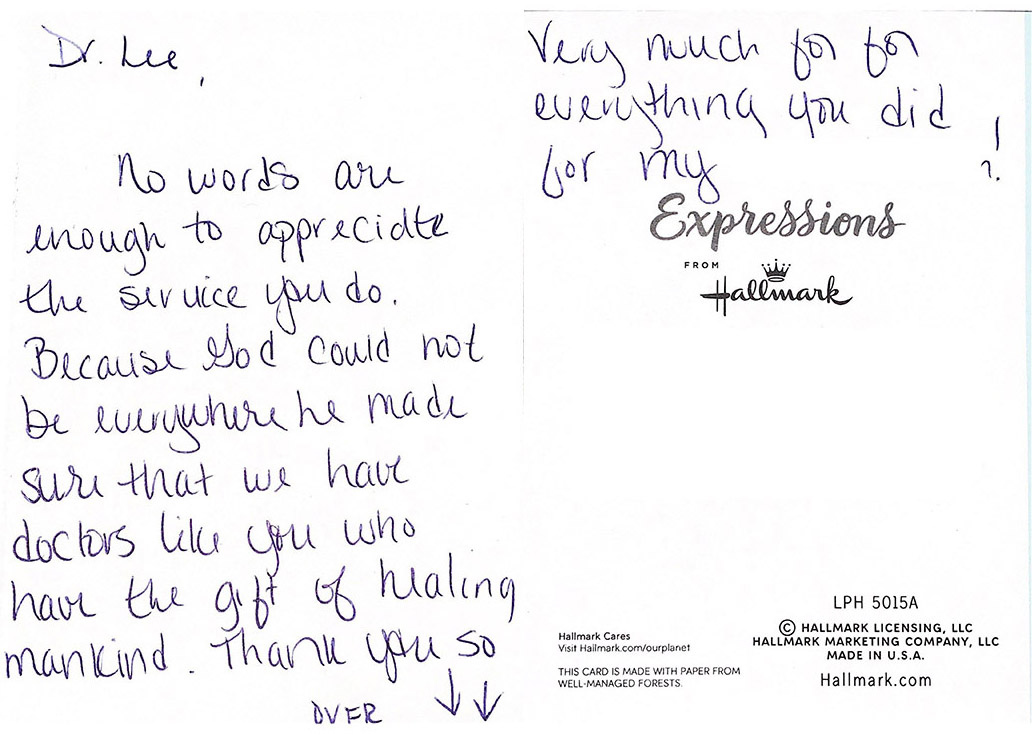 Dr. Lee,
No words are
enough to appreciate
the service you do.
Because God could not
be everywhere he made
sure that we have
doctors like you who
have the gift of healing
mankind. Thank you so
OVER ↓↓
Very much for for
everything you did
for my
!
Expressions
FROM
Hallmark
LPH 5015A
© HALLMARK LICENSING, LLC
HALLMARK MARKETING COMPANY, LLC
MADE IN U.S.A.
Hallmark.com
Hallmark Cares
Visit Hallmark.com/ourplanet
THIS CARD IS MADE WITH PAPER FROM
WELL-MANAGED FORESTS.